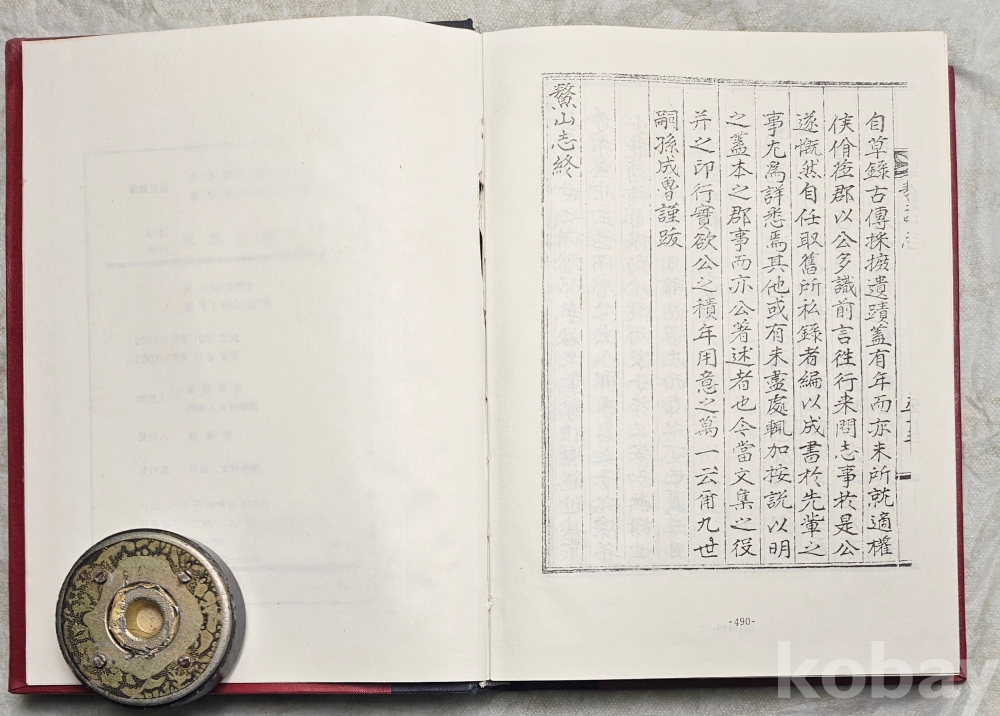 自草錄古傳採摭遺蹟蓋有年而亦未所就適權
侯佾莅郡以公多識前言徃行来問志事於是公
遂慨然自任取舊所私錄者編以成書於先輩之
事尢爲詳悉焉其他或有未盡處輒加按說以明
之蓋本之郡事而亦公著述者也今當文集之役
并之印行實欲公之積年用意之萬一云甬九世
嗣孫成曺謹跋
鰲山志終
-490-
kobay